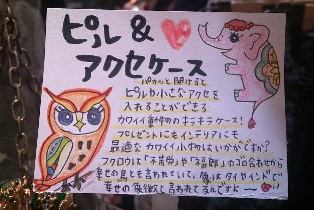 ピル&♥
アクセケース
パカッと開けると
ピルや小さなアクセを
入れることができる
カワイイ動物のキラキラケース!
プレゼントにもインテリアにも
最適なカワイイ小物はいかがですか?
フクロウは「不苦労」や「福郎」のゴロ合わせから
幸せの鳥とも言われていて、象はダイヤインドで
幸せの象徴と言われてるんですヒ